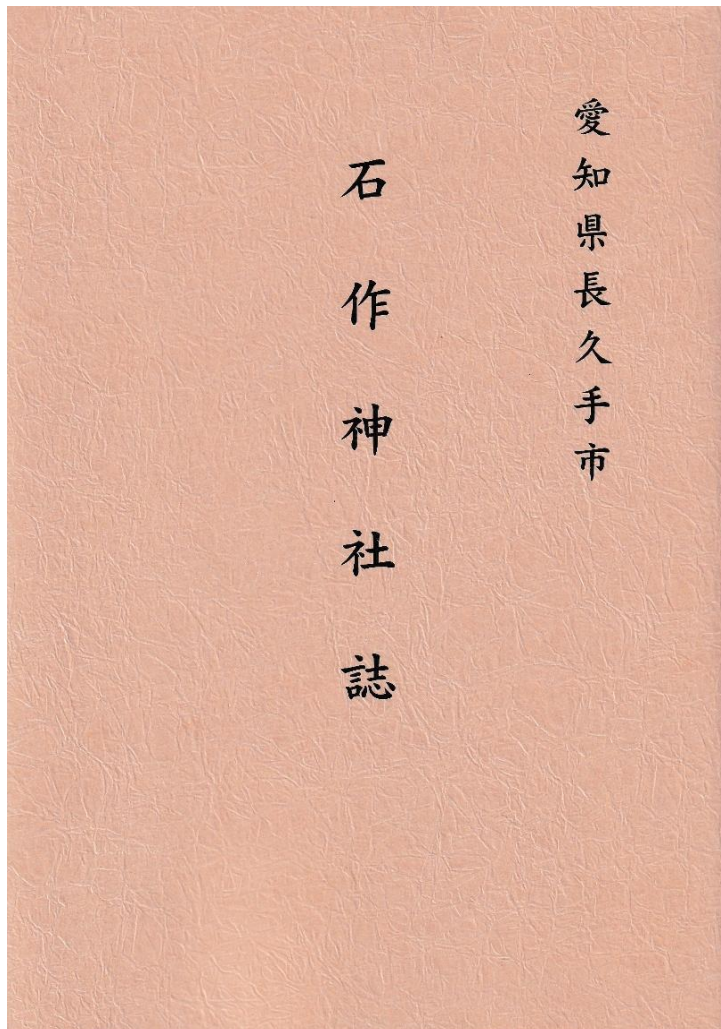 愛知県長久手市
石作神社誌